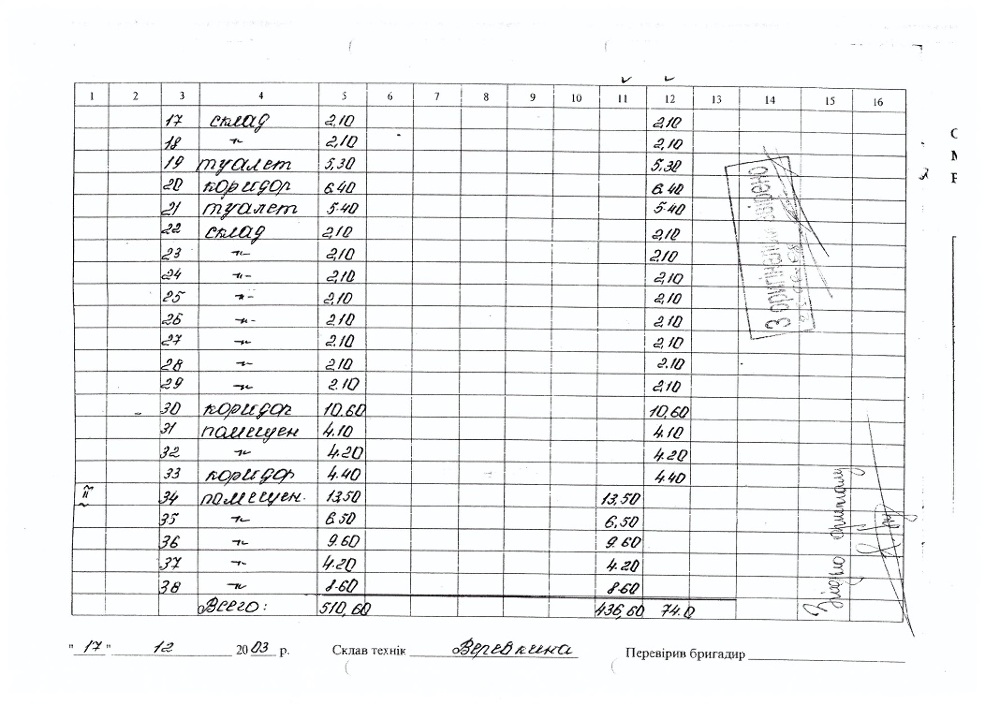 1 2 3 4 5 6 7 8 9 10 11 12 13 14 15 16
17 склад 2,10 2,10
18 -"- 2,10 2,10
19 туалет 5,30 5,30
20 коридор 6.40 6.40
21 туалет 5.40 5.40
22 склад 2,10 2,10
23 -"- 2,10 2,10
24 -"- 2,10 2,10
25 -"- 2,10 2,10
26 -"- 2.10 2,10
27 -"- 2.10 2,10
28 -"- 2,10 2.10
29 -"- 2.10 2,10
30 коридор 10,60 10,60
31 помещен 4.10 4.10
32 -"- 4.20 4.20
33 коридор 4.40 4.40
II 34 помещен. 13,50 13,50
35 -"- 6.50 6,50
36 -"- 9.60 9.60
37 -"- 4.20 4.20
38 -"- 8.60 8.60
Всего: 510,60 436,60 74.0
З оригіналом звірено
Згідно оригіналу
"17" 12 2003 р. Склав технік Веревкина Перевірив бригадир